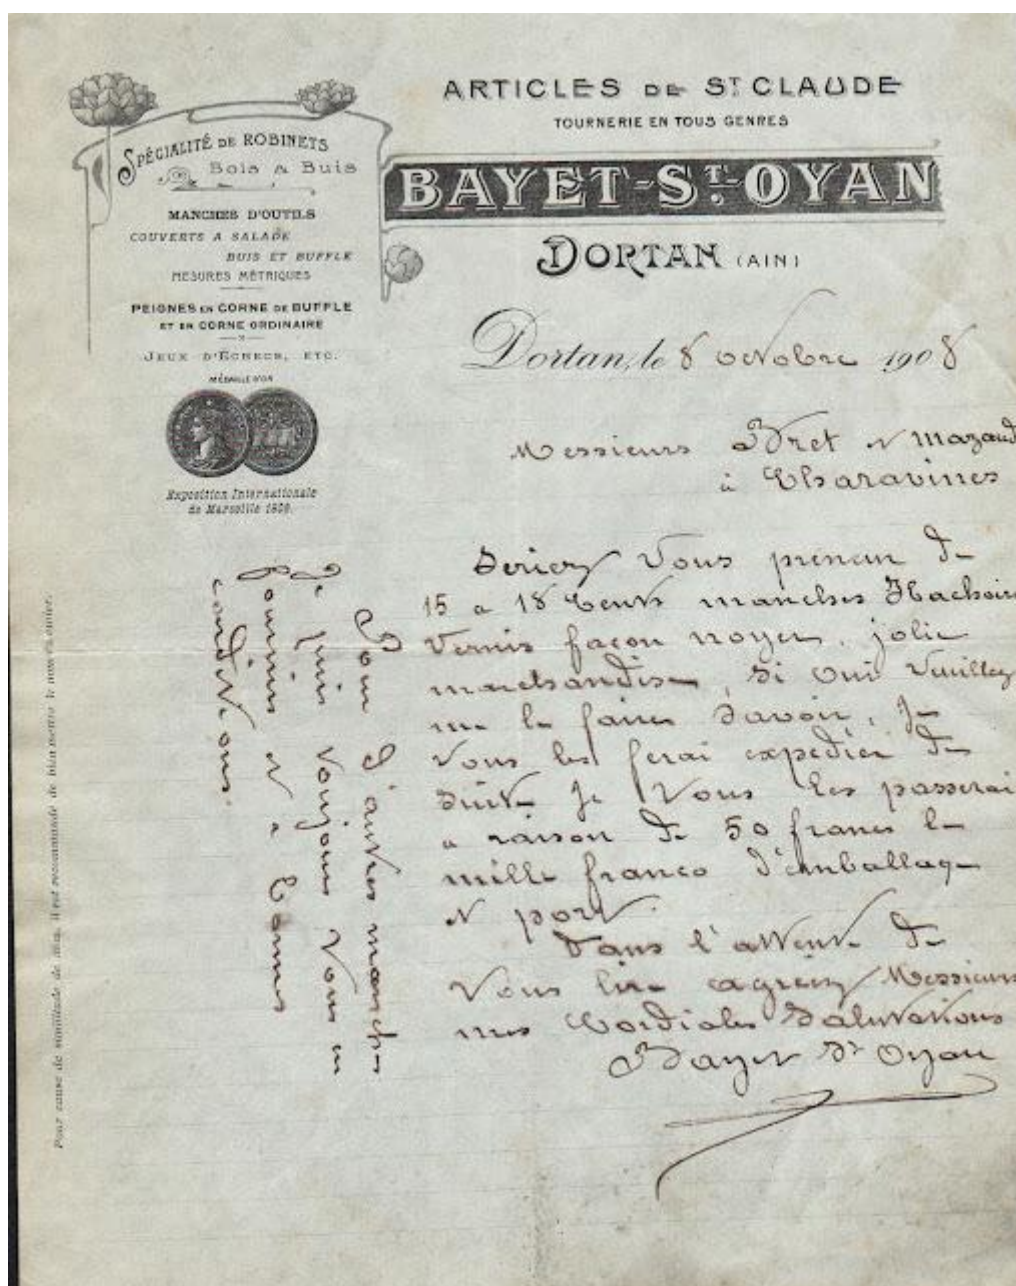 ARTICLES DE ST CLAUDE
TOURNERIE EN TOUS GENRES
BAYET-ST-OYAN
DORTAN (AIN)
SPÉCIALITÉ DE ROBINETS
Bois & Buis
MANCHES D'OUTILS
COUVERTS A SALADE
BUIS ET BUFFLE
MESURES MÉTRIQUES
PEIGNES EN CORNE DE BUFFLE
ET EN CORNE ORDINAIRE
JEUX D'ÉCHECS, ETC.
MÉDAILLE D'OR
Exposition Internationale
de Marseille
Dortan, le 8 octobre 1908
Messieurs Bret et Mazaud
à Charavines
Seriez Vous preneur de
15 a 18 Cents manches Hachoirs
Vernis façon noyer, jolie
marchandise, Si oui Veuillez
me le faires Savoir, Je
Vous les ferai expedier de
suite Je Vous les passerai
a raison de 50 francs le
mille franco d'emballage
et port.
Dans l'attente de
Vous lire agréez Messieurs
mes Cordiales Salutations
Bayet St Oyan
Pour d'autres manches
Je puis toujours Vous en
fournir et a bonnes
conditions.
Pour cause de similitude de nom, il est recommandé de bien mettre le nom en entier.